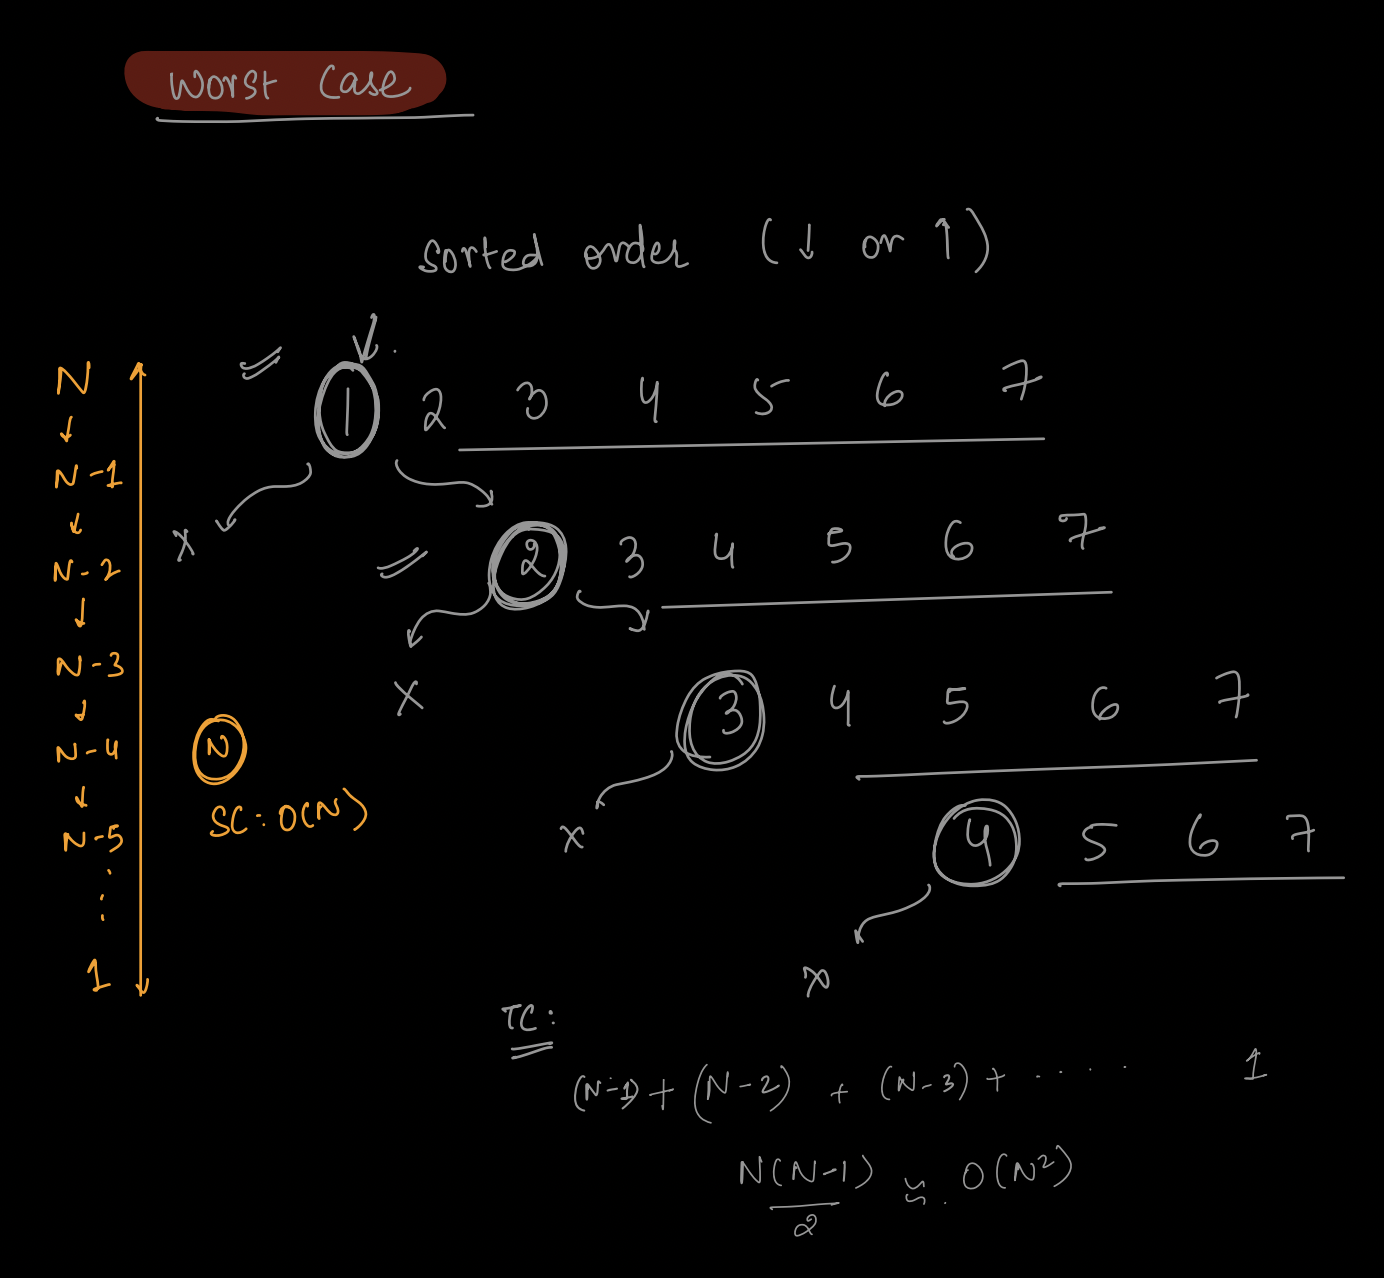 Worst Case
Sorted order (↓ or ↑)
1 2 3 4 5 6 7
X
2 3 4 5 6 7
X
3 4 5 6 7
X
4 5 6 7
X
N
↓
N-1
↓
N-2
↓
N-3
↓
N-4
↓
N-5
⋮
1
N
SC: O(N)
TC:
(N-1) + (N-2) + (N-3) + ..... 1
N(N-1)
2
≈ O(N²)